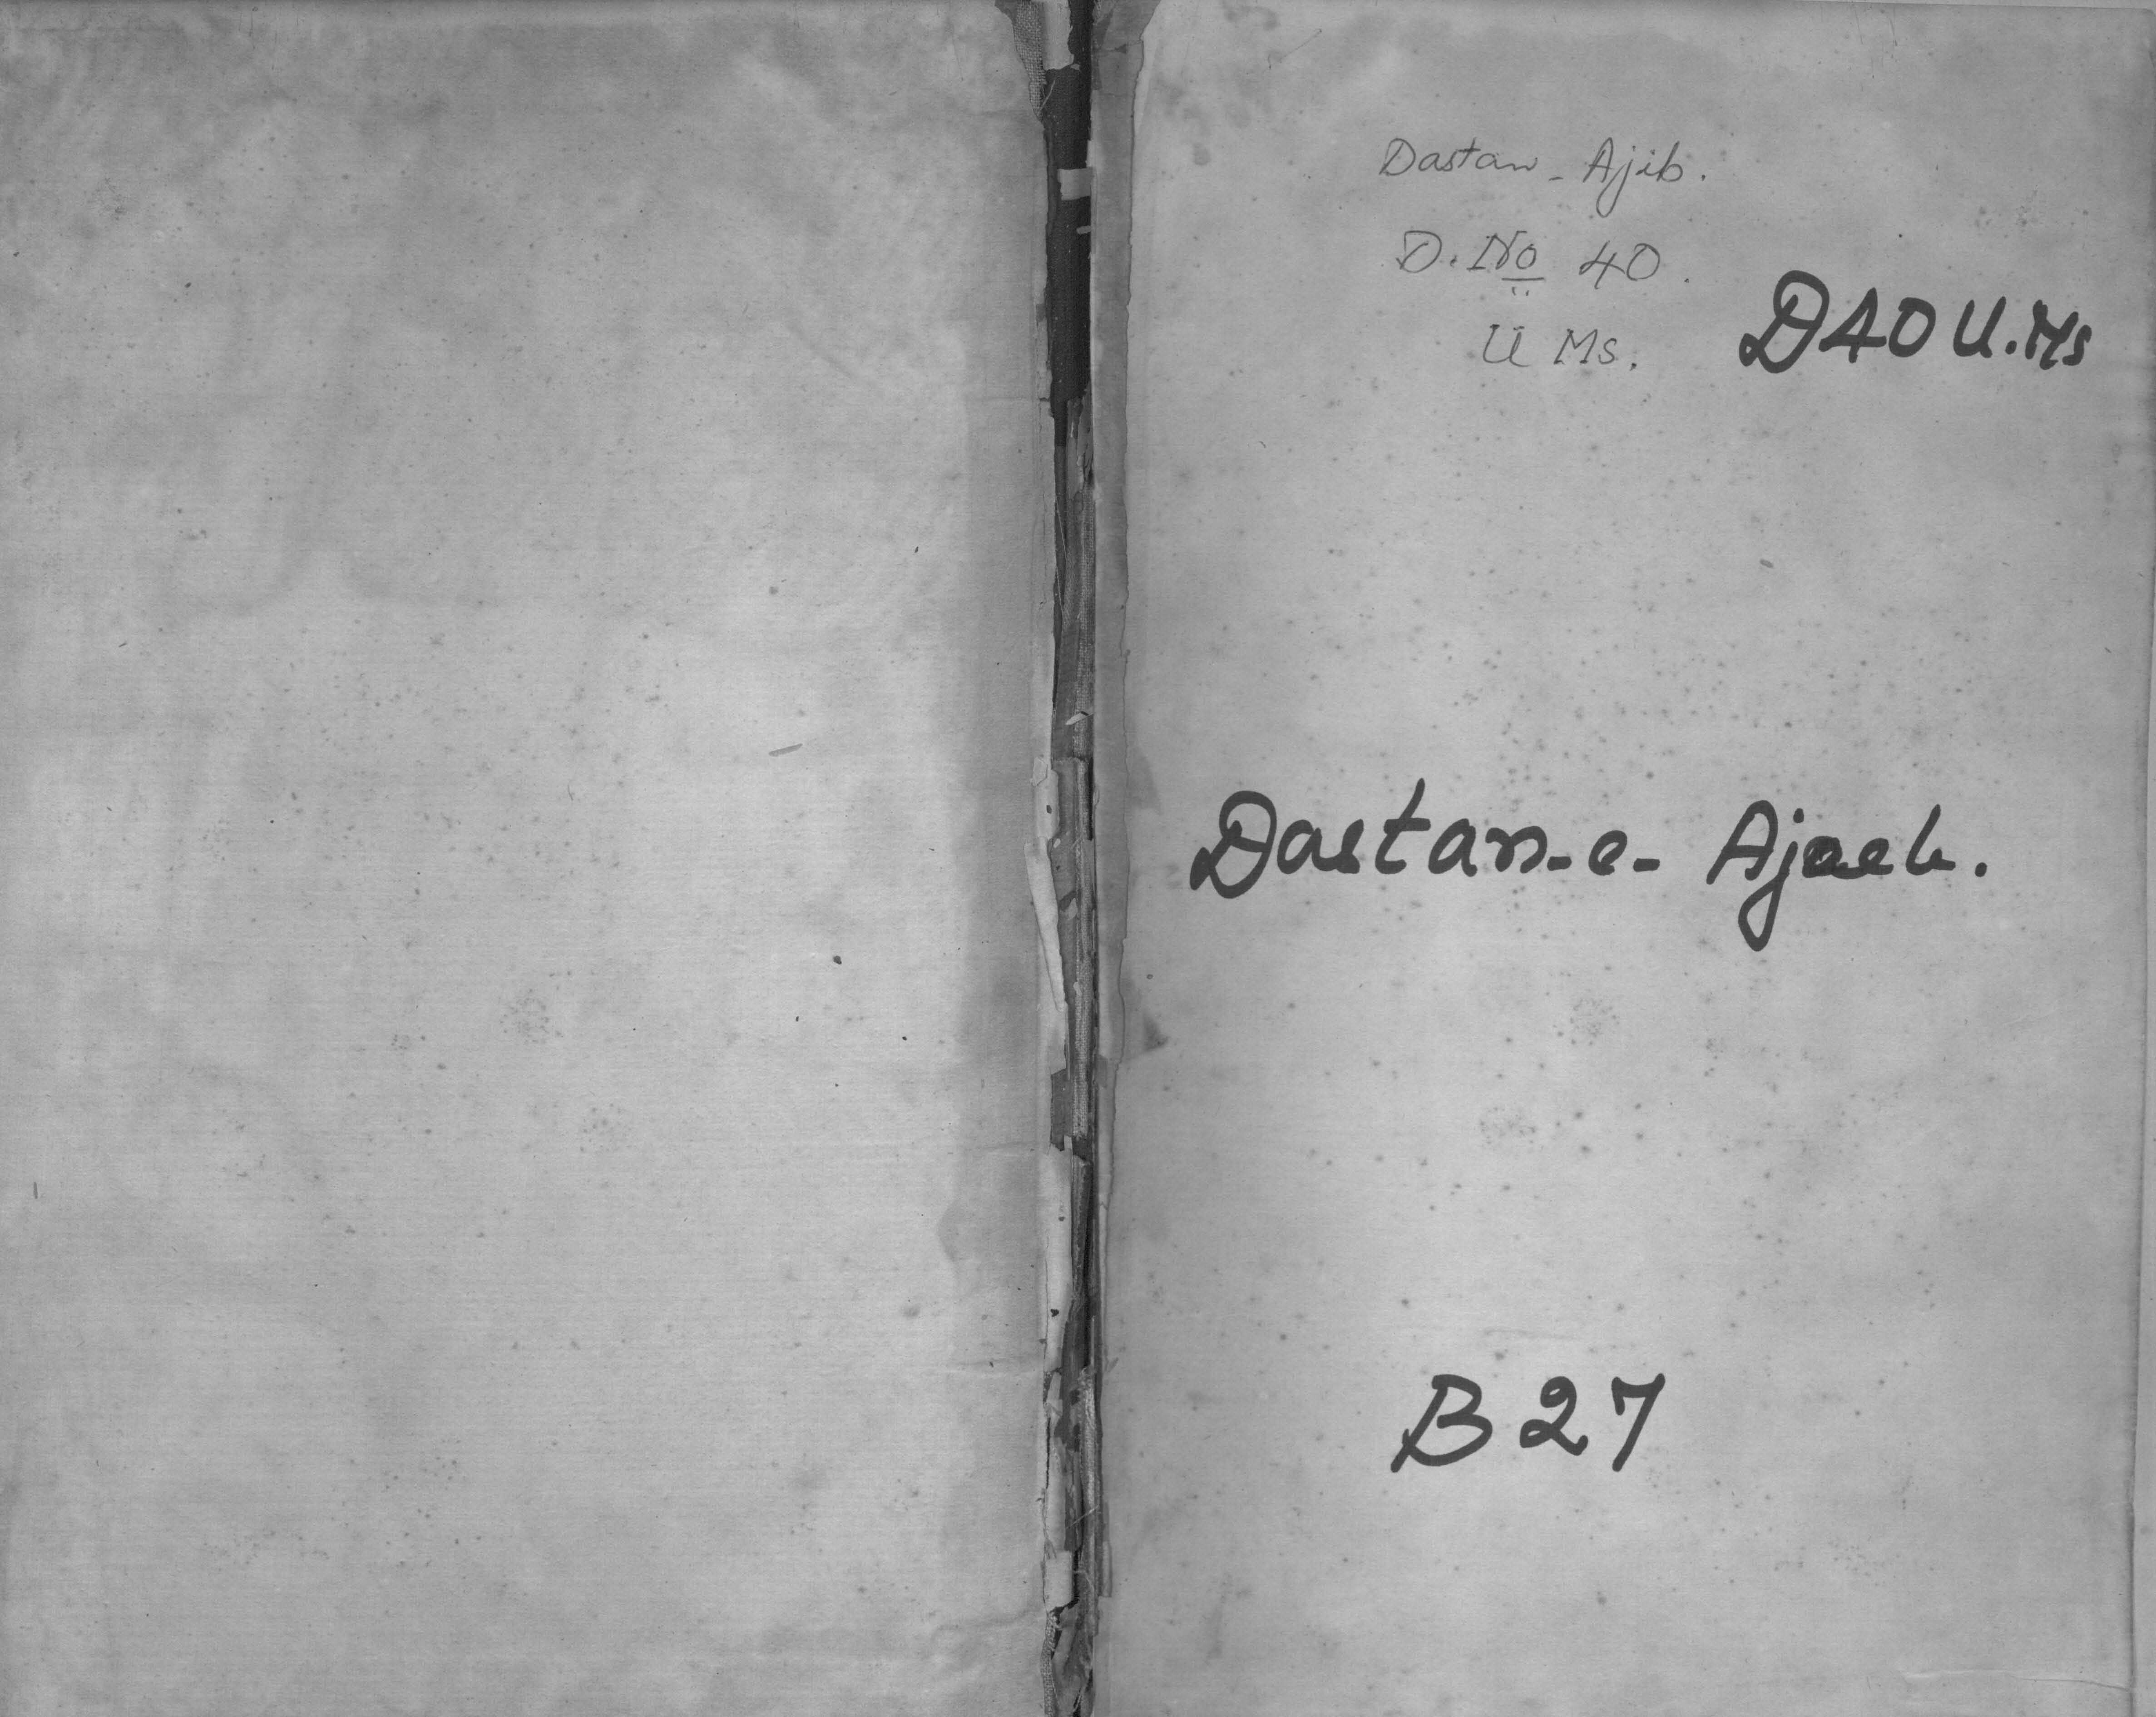 Dastan - Ajib.
D. No 40.
U Ms.
D40 U.Ms
Dastan-e- Ajaeb.
B 27